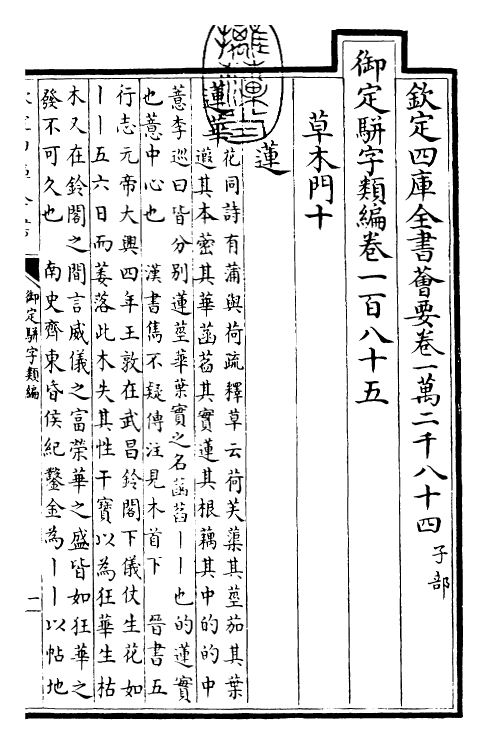 欽定四庫全書薈要卷一萬二千八十四 子部
御定駢字類編卷一百八十五
草木門十
蓮
蓮華
花同詩有蒲與荷疏釋草云荷芙蕖其莖茄其葉
蕸其本蔤其華菡萏其實蓮其根藕其中的的中
薏李巡曰皆分別蓮莖華葉實之名菡萏丨丨也的蓮實
也薏中心也 漢書雋不疑傳注見木首下 晉書五
行志元帝大興四年王敦在武昌鈴閣下儀仗生花如
丨丨五六日而萎落此木失其性干寶以為狂華生枯
木又在鈴閣之間言威儀之富榮華之盛皆如狂華之
發不可久也 南史齊東昏侯紀鑿金為丨丨以帖地
御定駢字類編
一